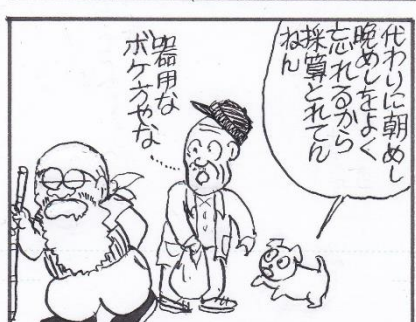 代わりに朝めし
晩めしをよく
忘れるから
採算とれてん
ねん
器用な
ボケ方やな
……